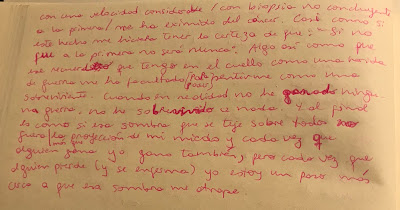 con una velocidad considerable / con biopsia no concluyente
a la primera / me ha eximido del cáncer. Casi como si
este hecho me hiciera tener la certeza de que: "Si no
fue a la primera no será nunca". Algo así como que
ese recuerdo que tengo en el cuello como una herida
de guerra me ha facultado para sentirme como una
(poder)
sobreviviente. Cuando en realidad no he ganado ningu-
na guerra, no he sobrevivido a nada. Y al final
es como si esa sombra que se teje sobre todos no
fuera más que la proyección de mi miedo y cada vez q
alguien gana yo gano también, pero cada vez que
alguien pierde (y se enferma) yo estoy un paso más
cerca a que esa sombra me atrape.